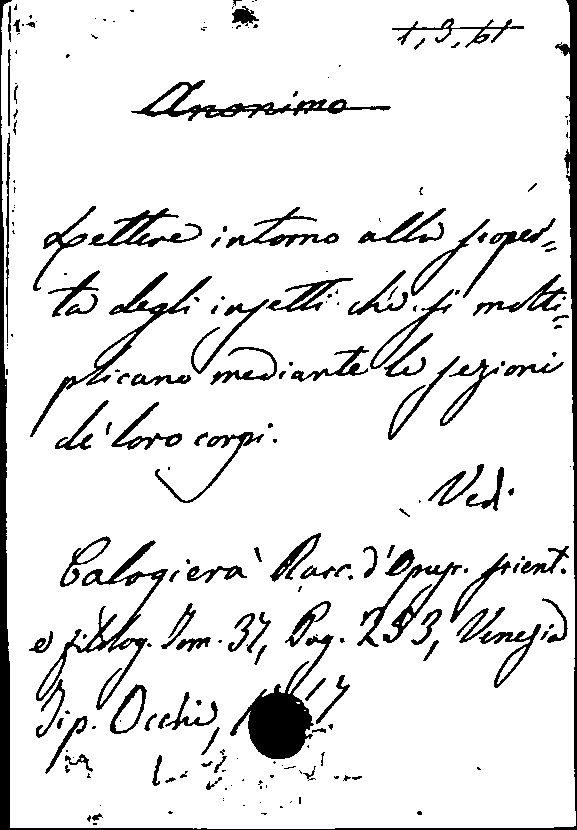 1,3,61
Anonimo
Lettere intorno alla scoper=
ta degli insetti che si molti=
plicano mediante le sezioni
de' loro corpi.
Vedi
Calogierà Racc. d'Opusc. scient.
e filolog. Tom. 37, Pag. 253, Venezia
Tip. Occhi,